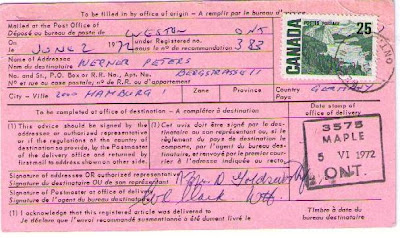 To be filled in by office of origin - A remplir par le bureau d'
Mailed at the Post Office of
Déposé au bureau de poste de WESTON ONT
on le JUNE 2 1972 under Registered No. sous le no de recommandation 383
Name of Addressee
Nom du destinataire WERNER PETERS
No. and St., P.O. Box or R.R. No., Apt. No.
Nº et rue ou case postale; nº de R.R. ou d'appartement BERGSTRASSE 11
City - Ville 2000 HAMBURG 1 Zone Province Country Pays GERMANY
CANADA 25
POSTES POSTAGE
To be completed at office of destination - A compléter à destination
(1) This advice should be signed by the addressee or authorized representative or if the regulations of the country of destination so provide, by the Postmaster of the delivery office and returned by first mail to address shown on other side.
(1) Cet avis doit être signé par le destinataire ou son représentant ou, si le règlement du pays de destination le comporte, par l'agent du bureau destinataire, et renvoyé par le premier courrier à l'adresse indiquée au recto.
Date stamp of office of delivery
3575
MAPLE
5 VI 1972
ONT.
Signature of addressee OR authorized representative
Signature du destinataire OU de son représentant
Signature of Postmaster at office of delivery
Signature de l'agent du bureau destinataire
(1) I acknowledge that this registered article was delivered to
Je déclare que l'envoi recommandé susmentionné a été dûment livré le
Timbre à date du bureau destinataire